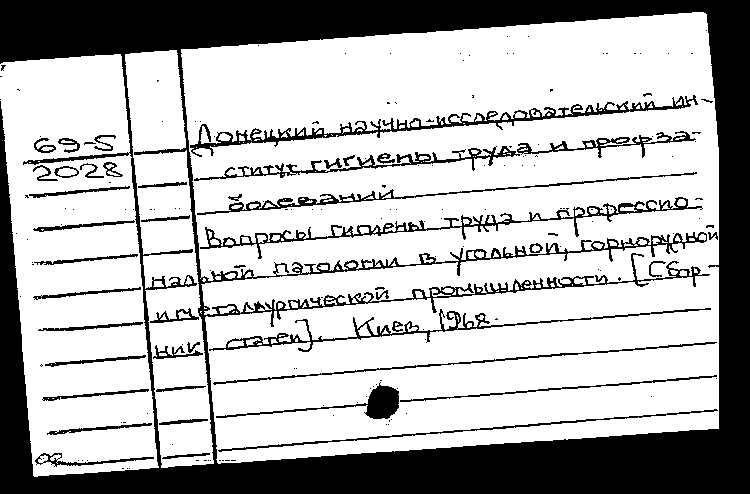 69-5
2028
Донецкий научно-исследовательский ин-
ститут гигиены труда и профза-
болеваний
Вопросы гигиены труда и професcио-
нальной патологии в угольной, горнорудной
и металлургической промышленности. [Сбор-
ник статей]. Киев, 1968.